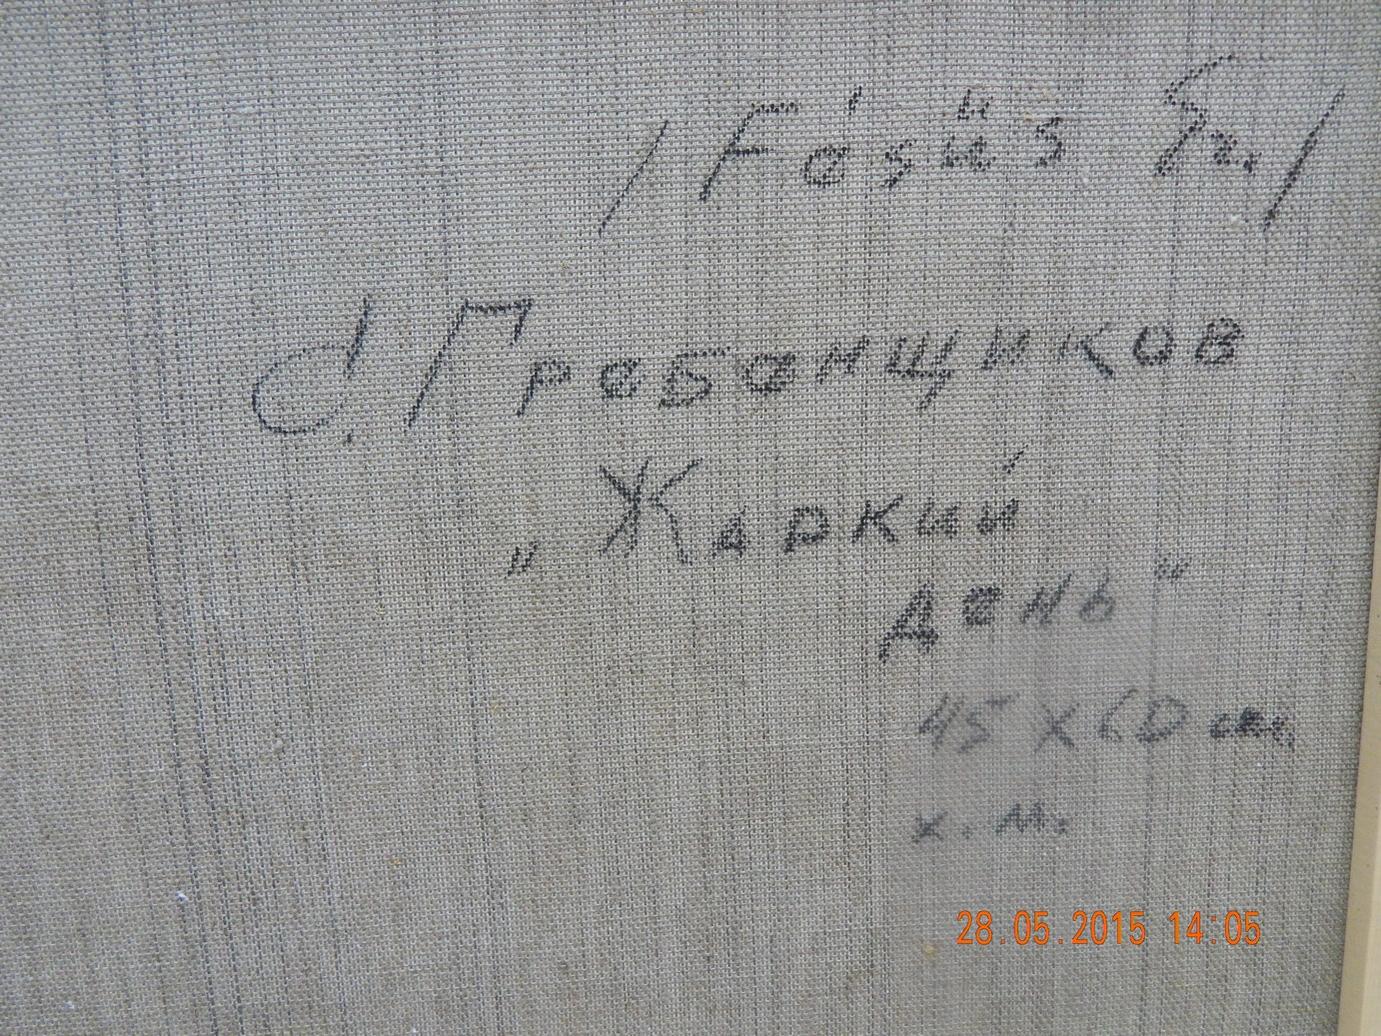 / Fésüs Gy. /
С. Гребенщиков
„Жаркий
день"
45 х 60 см,
х. м.
28.05.2015 14:05